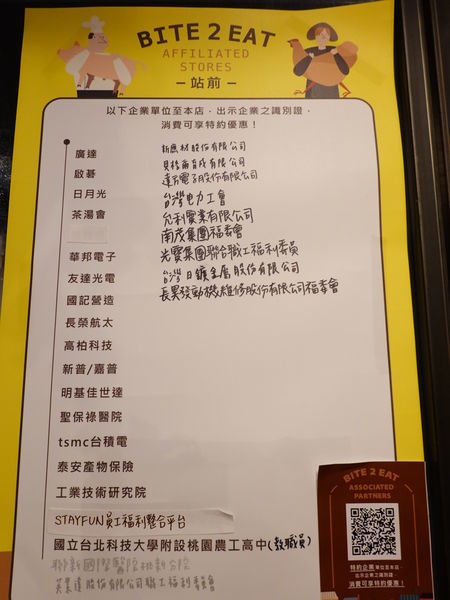 BITE 2 EAT
AFFILIATED
STORES
–站前–
以下企業單位至本店,出示企業之識別證,
消費可享特約優惠!
廣達
啟碁
日月光
茶湯會
華邦電子
友達光電
國記營造
長榮航太
高柏科技
新普/嘉普
明基佳世達
聖保祿醫院
tsmc台積電
泰安產物保險
工業技術研究院
STAYFUN員工福利整合平台
國立台北科技大學附設桃園農工高中(教職員)
聯新國際醫院桃新分院
英業達股份有限公司職工福利委員會
新應材股份有限公司
貝格爾育成有限公司
達方電子股份有限公司
台灣电力工會
允利實業有限公司
南茂集團福委會
光寶集團聯合職工福利委員
台灣日鑛金屬股份有限公司
長異發動機維修股份有限公司福委會
BITE 2 EAT
ASSOCIATED
PARTNERS
特約企業單位至本店,
出示企業之識別證,
消費可享特約優惠!